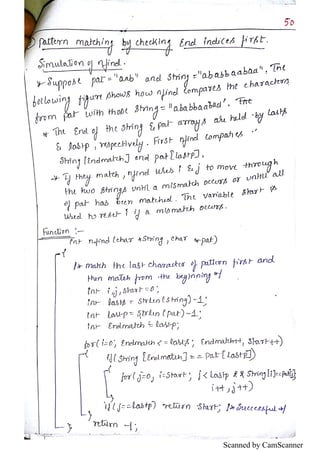 50
Pattern matching by checking End indices first.
Simulation of nfind.
* Suppose pat = "aab" and string = "ababbaabaa", The
following figure shows how nfind compares the characters
from pat with those string = "ababbaabaa". The
* The End of the string & pat arrays are held by lasts
& lastp, respectively. First nfind compares
string [endmatch] and pat [lastp].
* If they match, nfind uses i & j to move through
the two strings until a mismatch occurs or until all
of pat has been matched. The variable start is
used to reset i if a mismatch occurs.
Function :-
int nfind (char *string, char *pat)
{
/* match the last character of pattern first and
then match from the beginning */
int i, j, start = 0;
int lasts = strlen(string)-1;
int lastp = strlen(pat)-1;
int Endmatch = lastp;
for(i=0; Endmatch <= lasts; Endmatch++, start++)
{ if (string [Endmatch] == pat [lastp])
for(j=0, i=start; j<lastp && string[i]==pat[j];
i++, j++)
if (j==lastp) return start; /* successful */
}
return -1;
}
Scanned by CamScanner